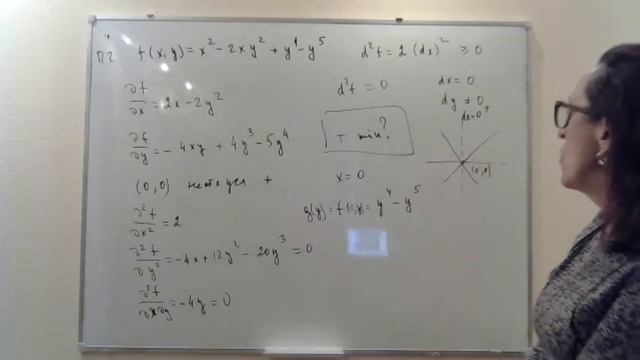 П2 f(x,y) = x² - 2xy² + y⁴ - y⁵
∂f/∂x = 2x - 2y²
∂f/∂y = -4xy + 4y³ - 5y⁴
(0,0) +
∂²f/∂x² = 2
∂²f/∂y² = -4x + 12y² - 20y³ = 0
∂²f/∂x∂y = -4y = 0
d²f = 2(dx)² ≥ 0
d²f = 0
т min?
x = 0
g(y) = f(0,y) = y⁴ - y⁵
dx = 0
dy ≠ 0
dx=0?
(0,0)